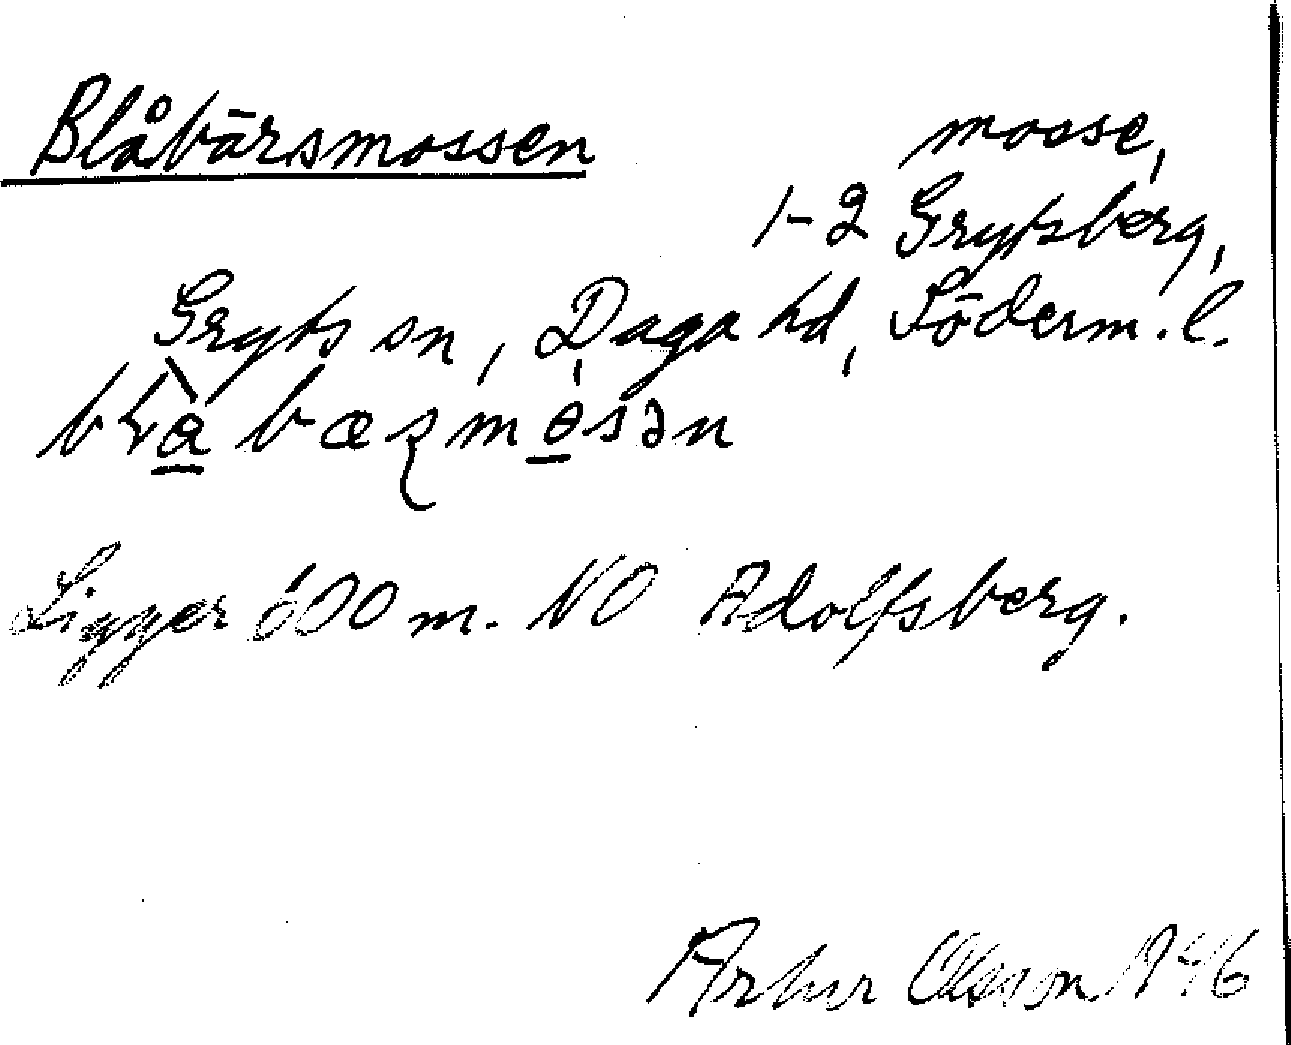 Blåbärsmossen
mosse,
1-2 Grytsberg,
Gryts sn, Daga hd, Söderm. l.
Ligger 600 m. NO Adolfsberg.
Artur Olsson 1946